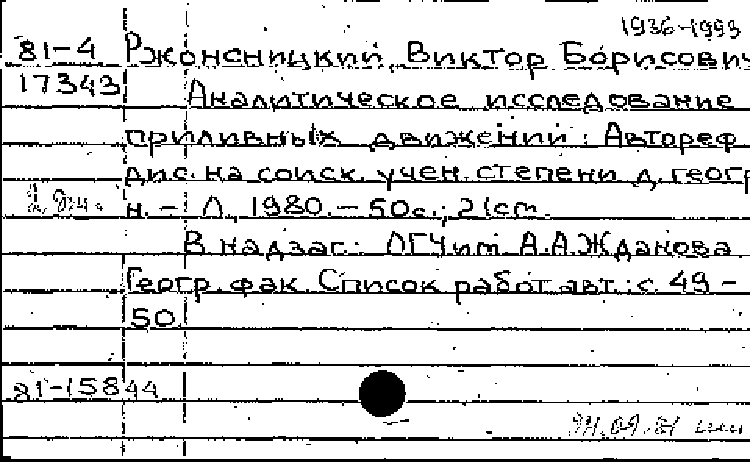 1936-1993
81-4 Ржонсницкий, Виктор Борисович
17343 Аналитическое исследование
приливных движений: Автореф
дис. на соиск. учен. степени д. геогр
н. - Л., 1980. - 50с.; 21см.
В надзаг.: ЛГУ им А.А.Жданова
Геогр. фак. Список работ авт.: с. 49-
50
81-15844